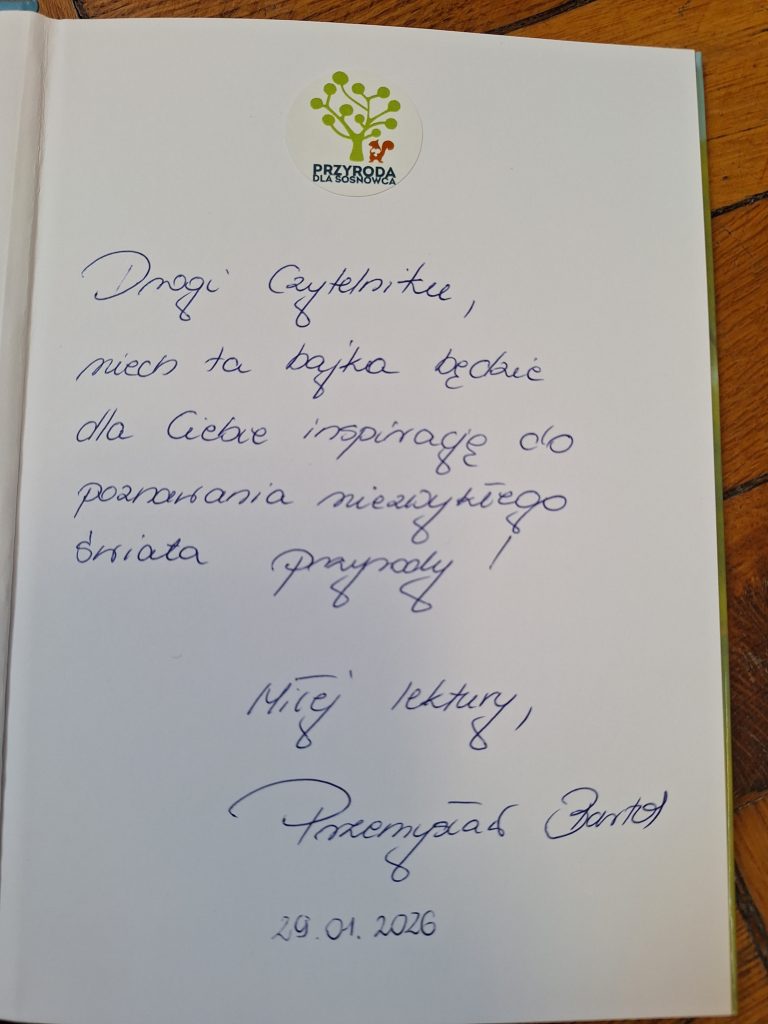 PRZYRODA
DLA SOSNOWCA
Drogi Czytelniku,
niech ta bajka będzie
dla Ciebie inspiracją do
poznawania niezwykłego
świata przyrody!
Miłej lektury,
Przemysław Bartos
29.01.2026